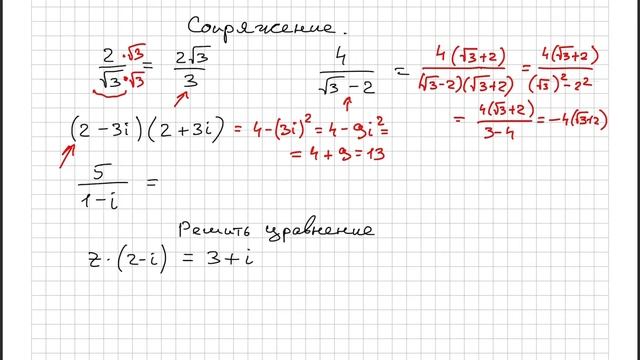 Сопряжение.
2/√3 ·√3/·√3 = 2√3/3
4/(√3 − 2) = 4(√3+2)/((√3−2)(√3+2)) = 4(√3+2)/((√3)² − 2²)
= 4(√3+2)/(3−4) = −4(√3+2)
(2 − 3i)(2 + 3i) = 4 − (3i)² = 4 − 9i² =
= 4 + 9 = 13
5/(1−i) =
Решить уравнение
z · (2−i) = 3 + i